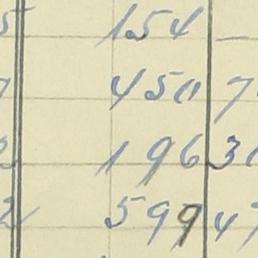 5 154 –
7 450 7
3 196 30
2 599 47